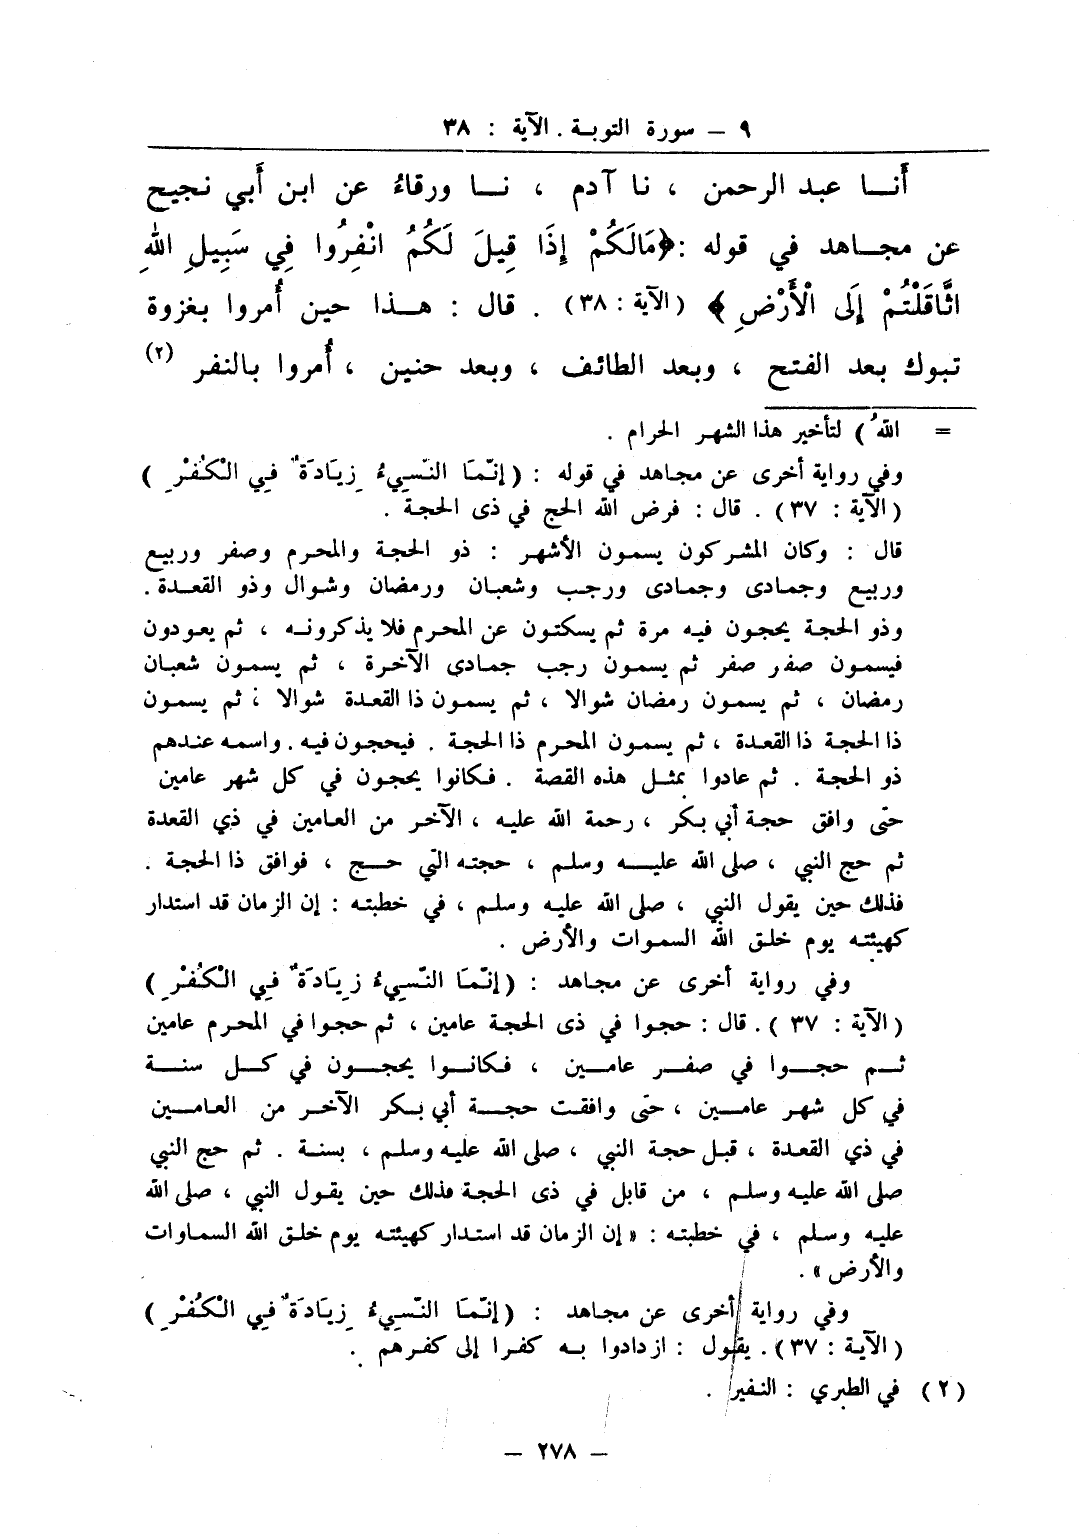 ٩ – سورة التوبة . الآية : ٣٨
أَنا عبد الرحمن ، نا آدم ، نا ورقاءُ عن ابن أَبي نجيح
عن مجاهد في قوله : ﴿مَالَكُمْ إِذَا قِيلَ لَكُمُ انْفِرُوا فِي سَبِيلِ اللهِ
اثَّاقَلْتُمْ إِلَى الْأَرْضِ﴾ (الآية : ٣٨) . قال : هذا حين أُمروا بغزوة
تبوك بعد الفتح ، وبعد الطائف ، وبعد حنين ، أُمروا بالنفر (٢)
= اللهُ ) لتأخير هذا الشهر الحرام .
وفي رواية أخرى عن مجاهد في قوله : ( إنّمَا النّسِيءُ زِيَادَةٌ فِي الْكُفْرِ )
( الآية : ٣٧ ) . قال : فرض الله الحج في ذى الحجة .
قال : وكان المشركون يسمون الأشهر : ذو الحجة والمحرم وصفر وربيع
وربيع وجمادى وجمادى ورجب وشعبان ورمضان وشوال وذو القعدة .
وذو الحجة يحجون فيه مرة ثم يسكتون عن المحرم فلا يذكرونه ، ثم يعودون
فيسمون صفر صفر ثم يسمون رجب جمادى الآخرة ، ثم يسمون شعبان
رمضان ، ثم يسمون رمضان شوالا ، ثم يسمون ذا القعدة شوالا ؛ ثم يسمون
ذا الحجة ذا القعدة ، ثم يسمون المحرم ذا الحجة . فيحجون فيه . واسمه عندهم
ذو الحجة . ثم عادوا بمثل هذه القصة . فكانوا يحجون في كل شهر عامين
حتى وافق حجة أبي بكر ، رحمة الله عليه ، الآخر من العامين في ذي القعدة
ثم حج النبي ، صلى الله عليه وسلم ، حجته التي حج ، فوافق ذا الحجة .
فذلك حين يقول النبي ، صلى الله عليه وسلم ، في خطبته : إن الزمان قد استدار
كهيئته يوم خلق الله السموات والأرض .
وفي رواية أخرى عن مجاهد : ( إنّمَا النّسِيءُ زِيَادَةٌ فِي الْكُفْرِ )
( الآية : ٣٧ ) . قال : حجوا في ذى الحجة عامين ، ثم حجوا في المحرم عامين
ثم حجوا في صفر عامين ، فكانوا يحجون في كل سنة
في كل شهر عامين ، حتى وافقت حجة أبي بكر الآخر من العامين
في ذي القعدة ، قبل حجة النبي ، صلى الله عليه وسلم ، بسنة . ثم حج النبي
صلى الله عليه وسلم ، من قابل في ذى الحجة فذلك حين يقول النبي ، صلى الله
عليه وسلم ، في خطبته : « إن الزمان قد استدار كهيئته يوم خلق الله السماوات
والأرض » .
وفي رواية أخرى عن مجاهد : ( إنّمَا النّسِيءُ زِيَادَةٌ فِي الْكُفْرِ )
( الآية : ٣٧ ) . يقول : ازدادوا به كفرا إلى كفرهم .
( ٢ ) في الطبري : النفير .
– ٢٧٨ –